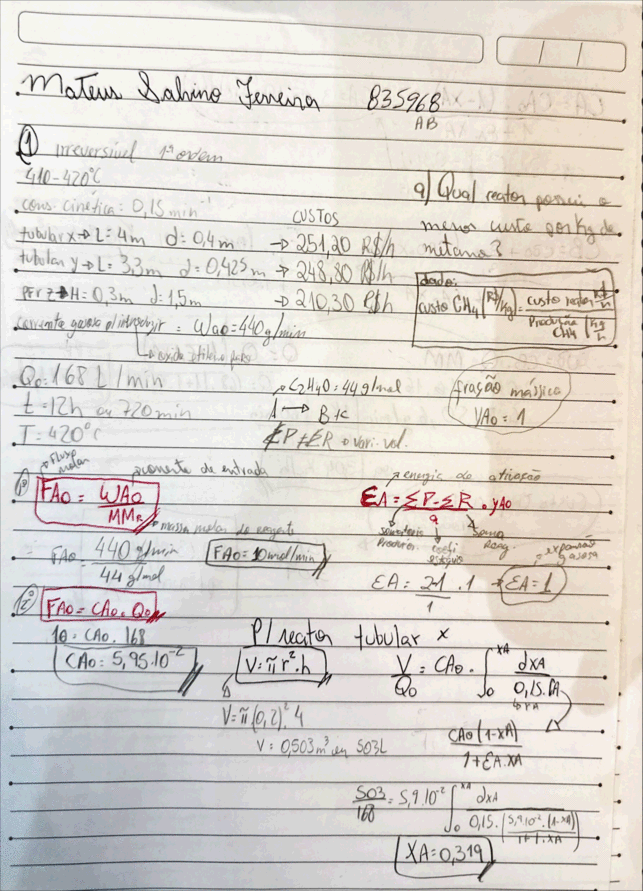 Mateus Sabino Ferreira 835968
AB
① irreversível 1ª ordem
410-420°C
cons. cinética: 0,15 min
CUSTOS
tubular x → L= 4m d: 0,4m → 251,20 R$/h
tubular y → L= 3,3m d= 0,425m → 248,30 R$/h
PFR Z → H= 0,3m d= 1,5m → 210,30 R$/h
corrente gasosa p/ introduzir = WA0= 440 g/min
óxido etileno puro
a) Qual reator possui o
menor custo por Kg de
metano?
dado:
custo CH4 (R$/kg) = custo reator R$/h
Produção CH4 kg/h
Q0: 168 L/min
t = 12h ou 720 min
T= 420°C
C2H4O= 44g/mol
A → B+C
ΣP ≠ ΣR → vari. vol.
fração mássica
YA0 = 1
1º
Fluxo molar
corrente de entrada
FA0 = WA0
MMR
massa molar do reagente
FA0= 440 g/min
44 g/mol
FA0= 10 mol/min
energia de ativação
εA = ΣP-ΣR . yA0
a
somatório Produtos
coefi estequio
Soma Reag.
expansão gasosa
εA = 2-1 . 1
1
εA=1
2º
FA0= CA0 . Q0
10 = CA0 . 168
CA0= 5,95.10⁻²
P/ reator tubular x
V= π r². h
V= π (0,2)². 4
V= 0,503 m³ ou 503L
V = CA0 . ∫ dXA
Q0 0 XA 0,15. CA
rA
CA0 (1-XA)
1+ εA.XA
503 = 5,9.10⁻² ∫ dXA
168 0 XA 0,15. (5,9.10⁻². (1-XA))
1+1.XA
XA= 0,319